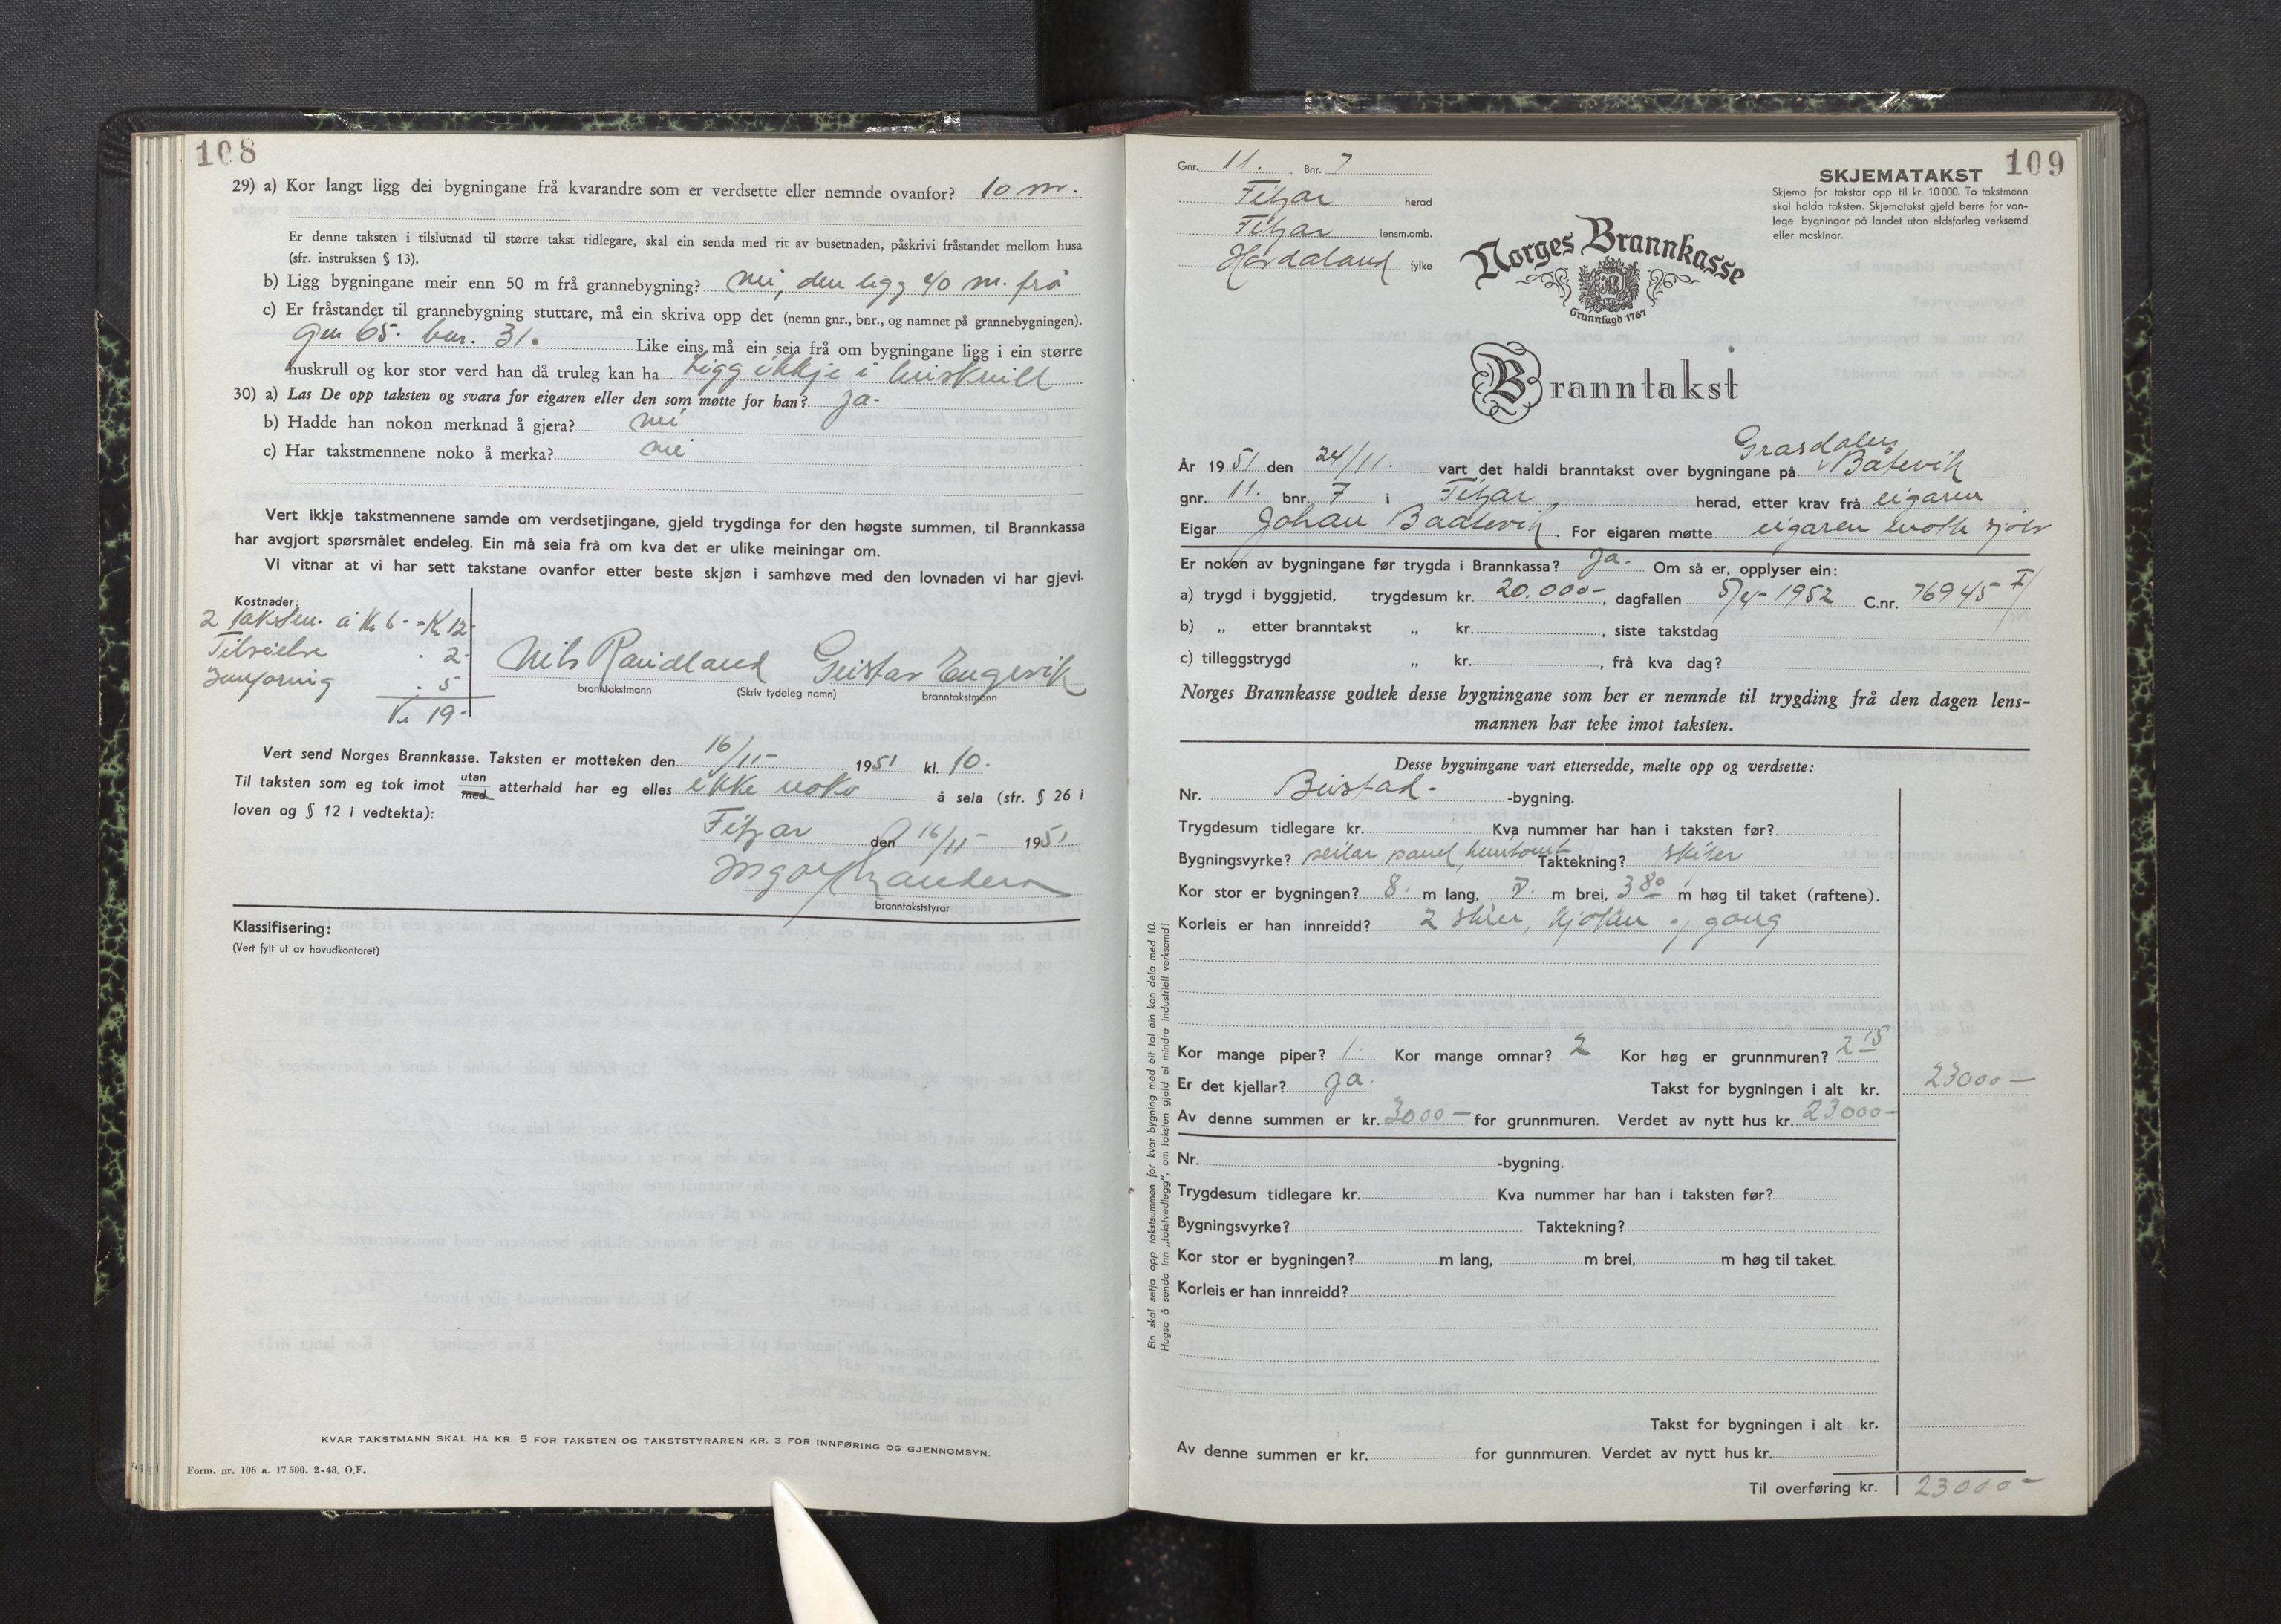 108
29) a) Kor langt ligg dei bygningane frå kvarandre som er verdsette eller nemnde ovanfor? 10 m.
Er denne taksten i tilslutnad til større takst tidlegare, skal ein senda med rit av busetnaden, påskrivi fråstandet mellom husa
(sfr. instruksen § 13).
b) Ligg bygningane meir enn 50 m frå grannebygning? nei, den ligg 40 m. frå
c) Er fråstandet til grannebygning stuttare, må ein skriva opp det (nemn gnr., bnr., og namnet på grannebygningen).
gnr 65. bnr. 31. Like eins må ein seia frå om bygningane ligg i ein større
huskrull og kor stor verd han då truleg kan ha Ligg ikkje i huskrull
30) a) Las De opp taksten og svara for eigaren eller den som møtte for han? ja-
b) Hadde han nokon merknad å gjera? nei
c) Har takstmennene noko å merka? nei
Vert ikkje takstmennene samde om verdsetjingane, gjeld trygdinga for den høgste summen, til Brannkassa
har avgjort spørsmålet endeleg. Ein må seia frå om kva det er ulike meiningar om.
Vi vitnar at vi har sett takstane ovanfor etter beste skjøn i samhøve med den lovnaden vi har gjevi.
Kostnader:
2 takstm. á Kr 6- = Kr 12-
Tilseielse - 2-
Innføring - 5
Kr 19-
Nils Raudland Gustav Engevik
branntakstmann (Skriv tydeleg namn) branntakstmann
Vert send Norges Brannkasse. Taksten er motteken den 16/11- 1951 kl. 10.
Til taksten som eg tok imot utan med atterhald har eg elles ikke noko å seia (sfr. § 26 i
loven og § 12 i vedtekta):
Fitjar den 16/11- 1951
branntakststyrar
Klassifisering:
(Vert fylt ut av hovudkontoret)
KVAR TAKSTMANN SKAL HA KR. 5 FOR TAKSTEN OG TAKSTSTYRAREN KR. 3 FOR INNFØRING OG GJENNOMSYN.
Form. nr. 106 a. 17 500. 2-48. O.F.
109
Gnr. 11. Bnr. 7
Fitjar herad
Fitjar lensm.omb.
Hordaland fylke
SKJEMATAKST
Skjema for takstar opp til kr. 10 000. To takstmenn
skal halda taksten. Skjematakst gjeld berre for van-
lege bygningar på landet utan eldsfarleg verksemd
eller maskinar.
Norges Brannkasse
Grunnlagd 1767
Branntakst
Grasdalen
År 1951 den 24/11. vart det haldi branntakst over bygningane på Båtevik
gnr. 11. bnr. 7 i Fitjar herad, etter krav frå eigaren
Eigar Johan Baatevik. For eigaren møtte eigaren møtte sjølv
Er nokon av bygningane før trygda i Brannkassa? Ja. Om så er, opplyser ein:
a) trygd i byggjetid, trygdesum kr. 20.000-, dagfallen 5/4-1952 C.nr. 76945 F/
b) „ etter branntakst „ kr. , siste takstdag
c) tilleggstrygd „ kr. , frå kva dag?
Norges Brannkasse godtek desse bygningane som her er nemnde til trygding frå den dagen lens-
mannen har teke imot taksten.
Desse bygningane vart ettersedde, mælte opp og verdsette:
Nr. Bustad- -bygning.
Trygdesum tidlegare kr. Kva nummer har han i taksten før?
Bygningsvyrke? panel, Taktekning? skifer
Kor stor er bygningen? 8. m lang, 7. m brei, 3 80 m høg til taket (raftene).
Korleis er han innreidd? 2 stuer, kjøken og gang
Kor mange piper? 1. Kor mange omnar? 2 Kor høg er grunnmuren? 2 15
Er det kjellar? ja. Takst for bygningen i alt kr. 23000-
Av denne summen er kr. 3000- for grunnmuren. Verdet av nytt hus kr. 23000-
Nr. -bygning.
Trygdesum tidlegare kr. Kva nummer har han i taksten før?
Bygningsvyrke? Taktekning?
Kor stor er bygningen? m lang, m brei, m høg til taket.
Korleis er han innreidd?
Takst for bygningen i alt kr.
Av denne summen er kr. for gunnmuren. Verdet av nytt hus kr.
Til overføring kr. 23000-
Ein skal setja opp takstsummen for kvar bygning med eit tal ein kan dela med 10.
Hugsa å senda inn „takstvedlegg", om taksten gjeld ei mindre industriell verksemd!